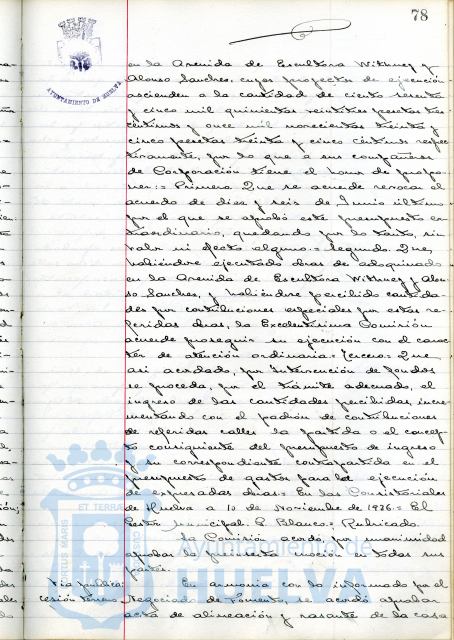 78
AYUNTAMIENTO DE HUELVA
en la Avenida de Escultora Withney y
Alonso Sanches, cuyos proyectos de ejecución
ascienden a la cantidad de ciento sesenta
y cinco mil quinientas veintitres pesetas tres
céntimos y once mil novecientas treinta y
cinco pesetas treinta y cinco céntimos respec
tivamente, por lo que a sus compañeros
de Corporación tiene el honor de propo-
ner:= Primero. Que se acuerde revocar el
acuerdo de diez y seis de Junio último
por el que se aprobó este presupuesto ex-
traordinario, quedando por lo tanto, sin
valor ni efecto alguno.= Segundo. Que,
habiéndose ejecutado obras de adoquinado
en la Avenida de Escultora Withney y Alon-
so Sanches, y habiéndose percibido cantida-
des por contribuciones especiales por estas re-
feridas obras, la Excelentísima Comisión
acuerde proseguir su ejecución con el carac-
ter de atención ordinaria.= Tercero.= Que
así acordado, por Intervención de fondos
se proceda, por el trámite adecuado, al
ingreso de las cantidades percibidas, incre-
mentando con el padrón de contribuciones
de referidas calles la partida o el concep-
to consiguiente del presupuesto de ingreso
y su correspondiente contrapartida en el
presupuesto de gastos para la ejecución
de expresadas obras.= En las Consistoriales
de Huelva a 10 de Noviembre de 1926.= El
Gestor Municipal: P. Blanco.= Rubricado.
La Comisión acordó, por unanimidad
aprobar la presente moción en todas sus
partes.
Vía pública: En armonía con lo informado por el
cesión terreno. Negociado de Fomento, se acordó aprobar
acta de alineación y rasante de la casa
Ayuntamiento de
HUELVA